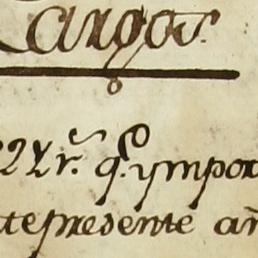 Cargos.
22 Vr.s q.e ympor
te presente añ